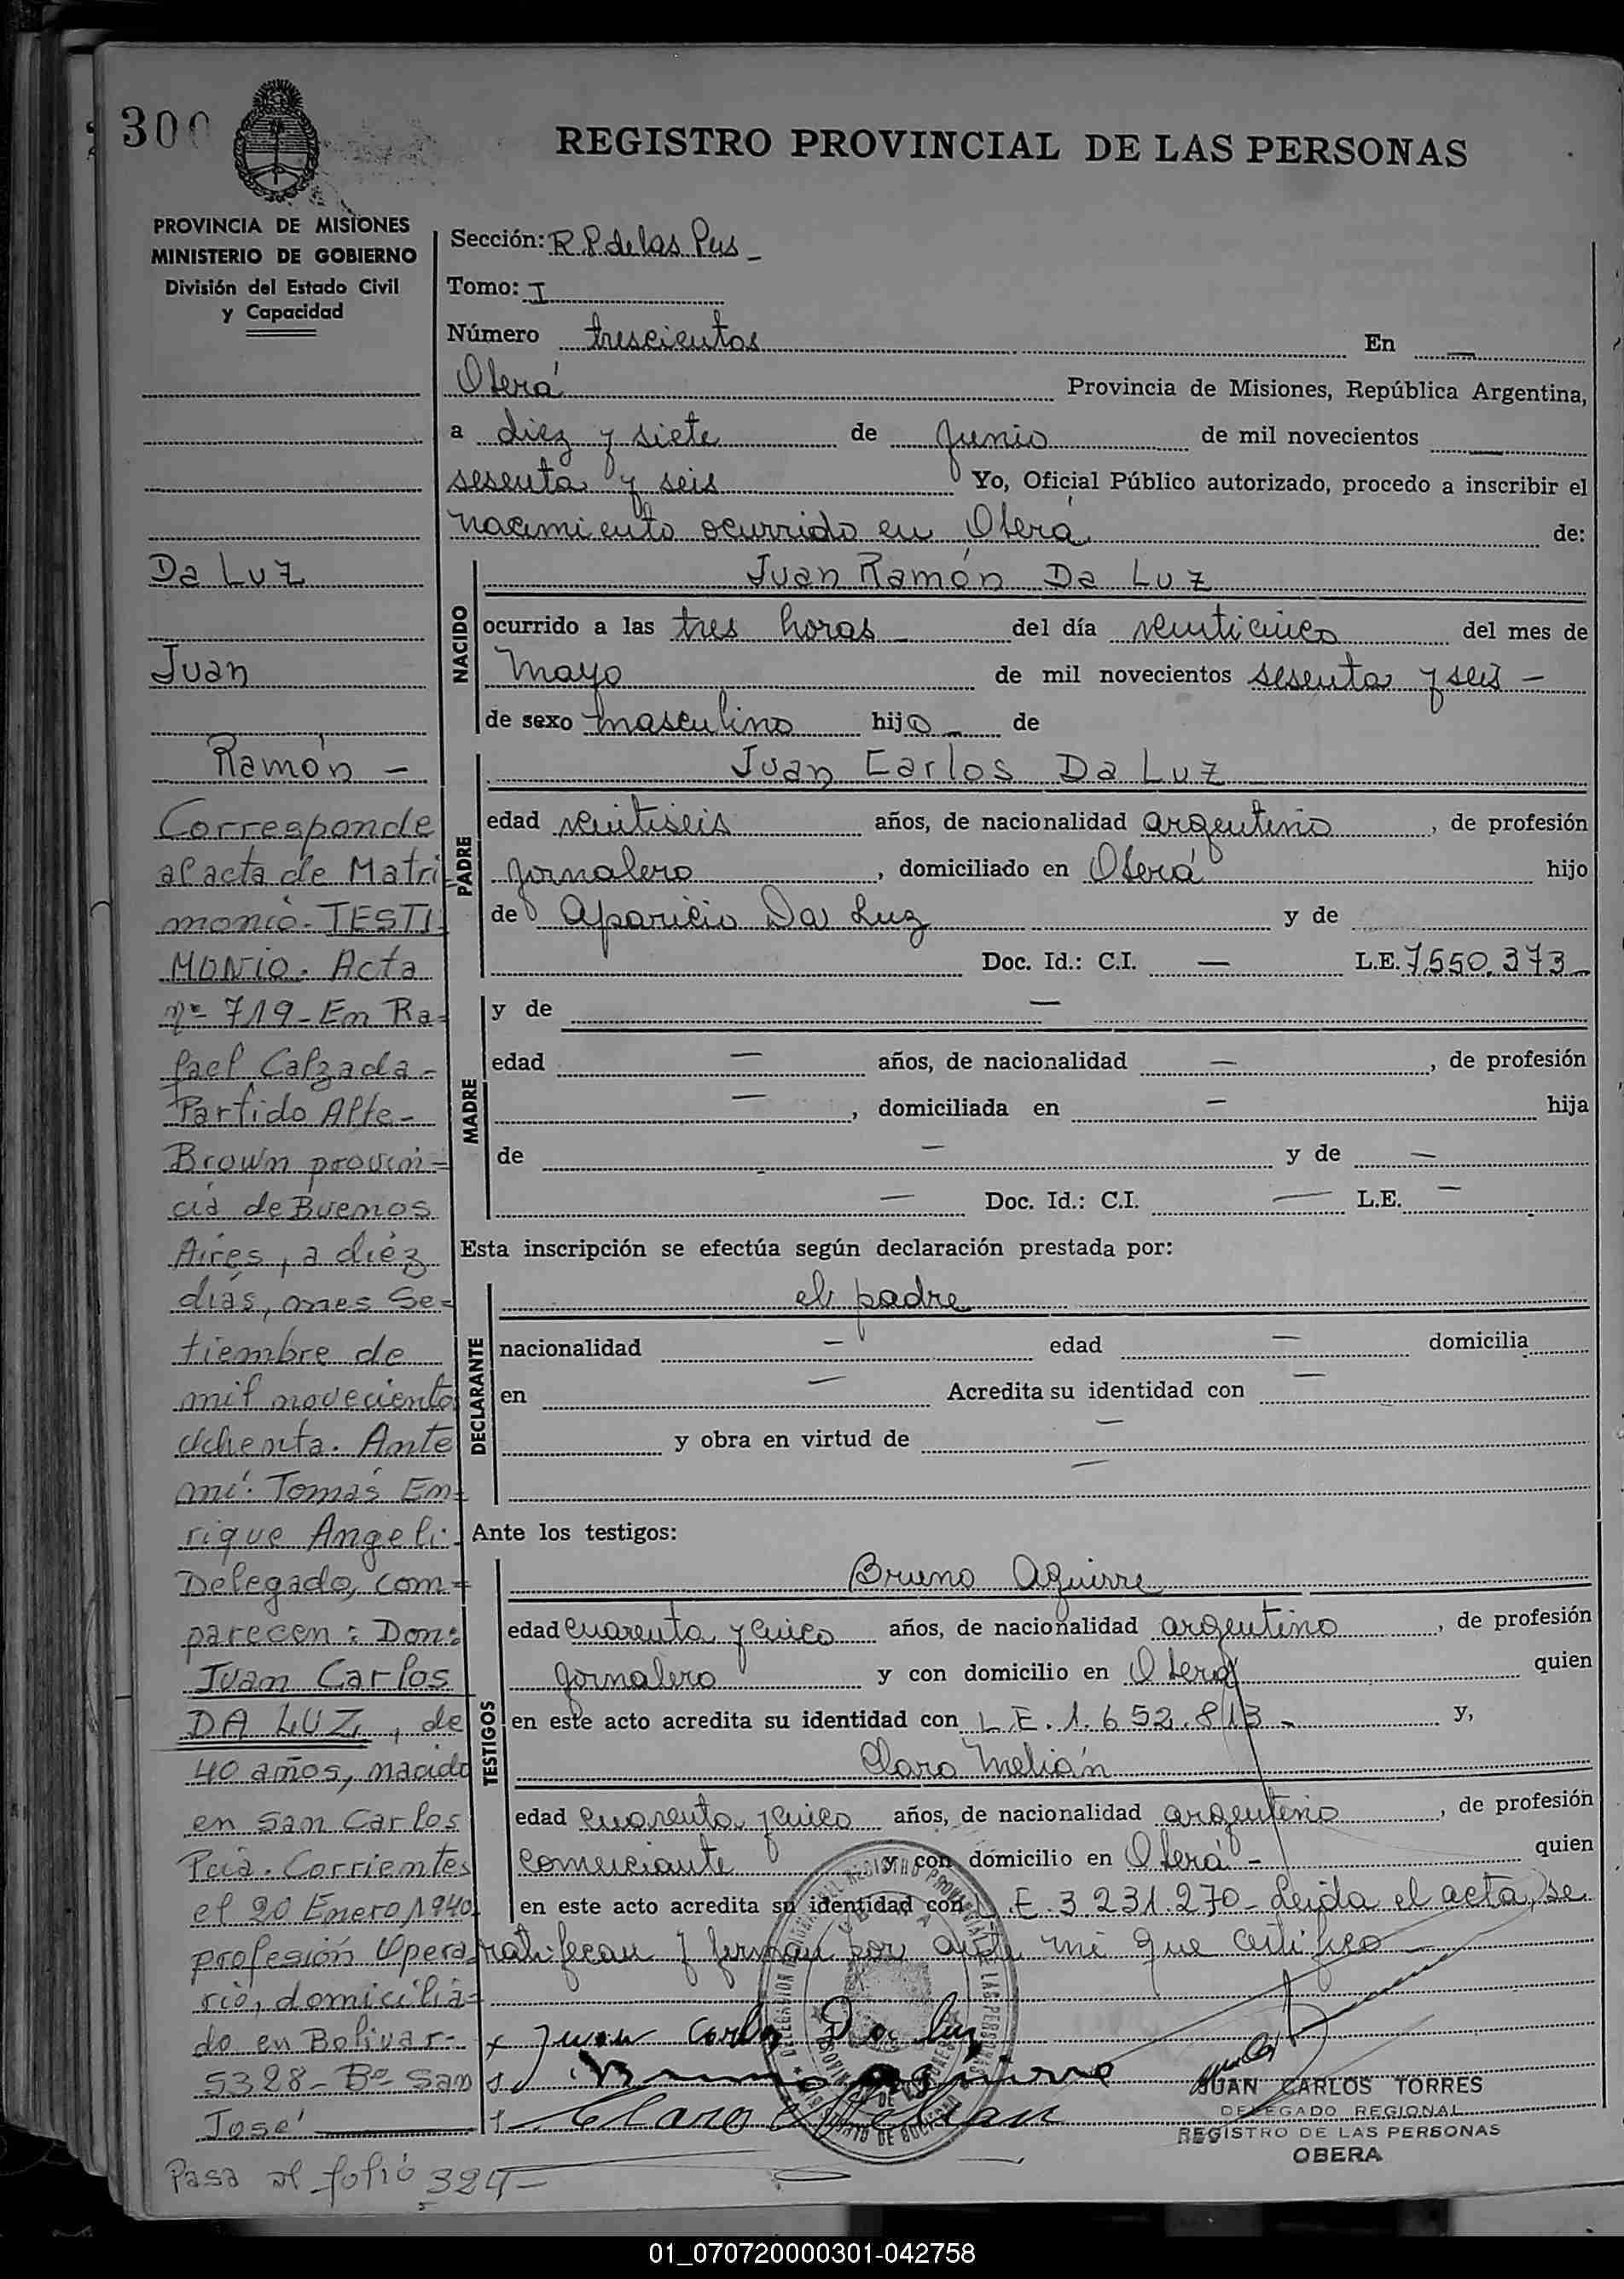 300
REGISTRO PROVINCIAL DE LAS PERSONAS
PROVINCIA DE MISIONES
MINISTERIO DE GOBIERNO
División del Estado Civil
y Capacidad
Da Luz
Juan
Ramón -
Corresponde
al acta de Matri
monio. TESTI
MONIO. Acta
nº 719 - En Ra=
fael Calzada -
Partido Alte -
Brown provin=
cia de Buenos
Aires, a diez
días, mes Se=
tiembre de
mil noveciento
ochenta. Ante
mí: Tomás En=
rique Angeli:
Delegado, com=
parecen: Don:
Juan Carlos
DA LUZ, de
40 años, nacido
en San Carlos
Pcia. Corrientes
el 20 Enero 1940
profesión Opera
rio, domicilia=
do en Bolivar:
5328 - Bº San
José
Pasa al folio 324 -
Sección: R.P. de las Pers -
Tomo: I
Número trescientos En —
Oberá Provincia de Misiones, República Argentina,
a diez y siete de Junio de mil novecientos —
sesenta y seis Yo, Oficial Público autorizado, procedo a inscribir el
nacimiento ocurrido en Oberá de:
NACIDO
Juan Ramón Da Luz
ocurrido a las tres horas del día veinticinco del mes de
Mayo de mil novecientos sesenta y seis -
de sexo masculino hijo - de
PADRE
Juan Carlos Da Luz
edad veintiseis años, de nacionalidad argentino, de profesión
Jornalero, domiciliado en Oberá hijo
de Aparicio Da Luz y de
Doc. Id.: C.I. — L.E. 7.550.373 -
MADRE
y de —
edad — años, de nacionalidad —, de profesión
—, domiciliada en — hija
de — y de —
— Doc. Id.: C.I. — L.E. —
Esta inscripción se efectúa según declaración prestada por:
DECLARANTE
el padre
nacionalidad — edad — domicilia
en — Acredita su identidad con —
y obra en virtud de —
—
Ante los testigos:
TESTIGOS
Bruno Aguirre
edad cuarenta y cinco años, de nacionalidad argentino, de profesión
Jornalero y con domicilio en Oberá quien
en este acto acredita su identidad con L.E. 1.652.813 - y,
Claro Melián
edad cuarenta y cinco años, de nacionalidad argentino, de profesión
comerciante y con domicilio en Oberá - quien
en este acto acredita su identidad con L.E. 3.231.270 - Leida el acta, se
ratifican y firman por ante mi que certifico
Juan Carlos Da Luz
Bruno Aguirre
Claro Melian
JUAN CARLOS TORRES
DELEGADO REGIONAL
REGISTRO DE LAS PERSONAS
OBERA
01_070720000301-042758